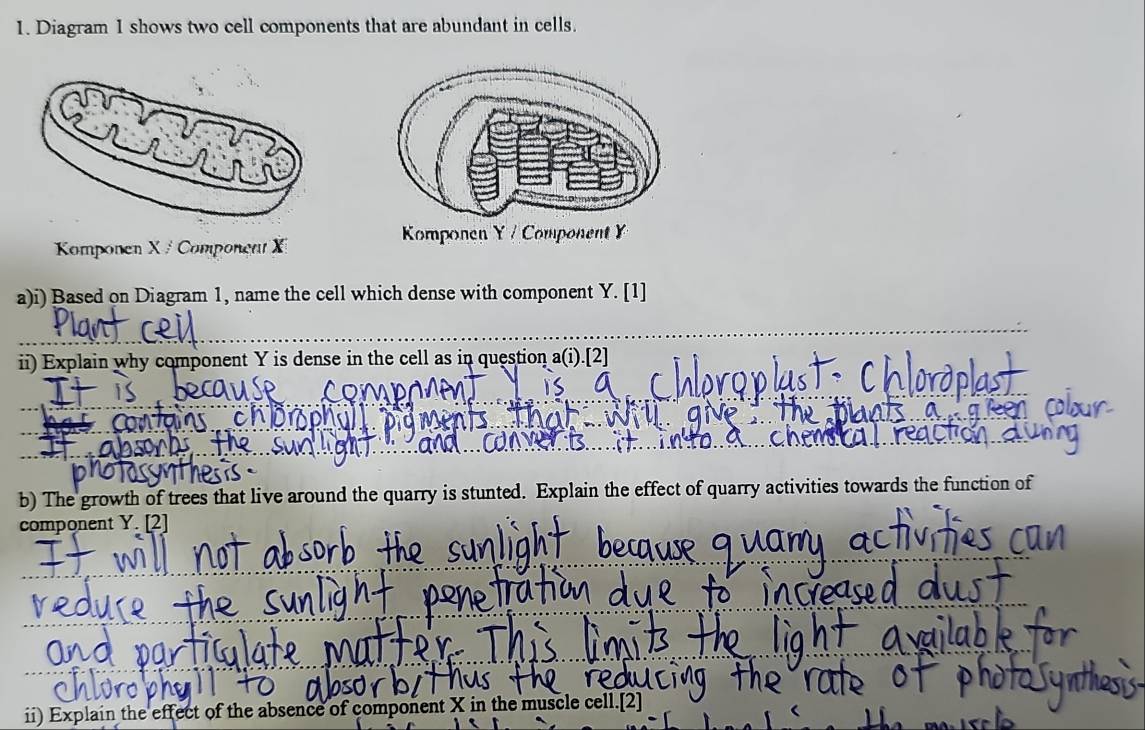 1. Diagram 1 shows two cell components that are abundant in cells.
Komponen X / Component X
Komponen Y / Component Y
a)i) Based on Diagram 1, name the cell which dense with component Y. [1]
Plant cell
ii) Explain why component Y is dense in the cell as in question a(i).[2]
It is because component Y is a chloroplast. Chloroplast
contains chlorophyll pigments that will give the plants a green colour.
It absorbs the sunlight and converts it into a chemical reaction during
photosynthesis.
b) The growth of trees that live around the quarry is stunted. Explain the effect of quarry activities towards the function of
component Y. [2]
It will not absorb the sunlight because quarry activities can
reduce the sunlight penetration due to increased dust
and particulate matter. This limits the light available for
chlorophyll to absorb, thus the reducing the rate of photosynthesis.
ii) Explain the effect of the absence of component X in the muscle cell.[2]
the muscle